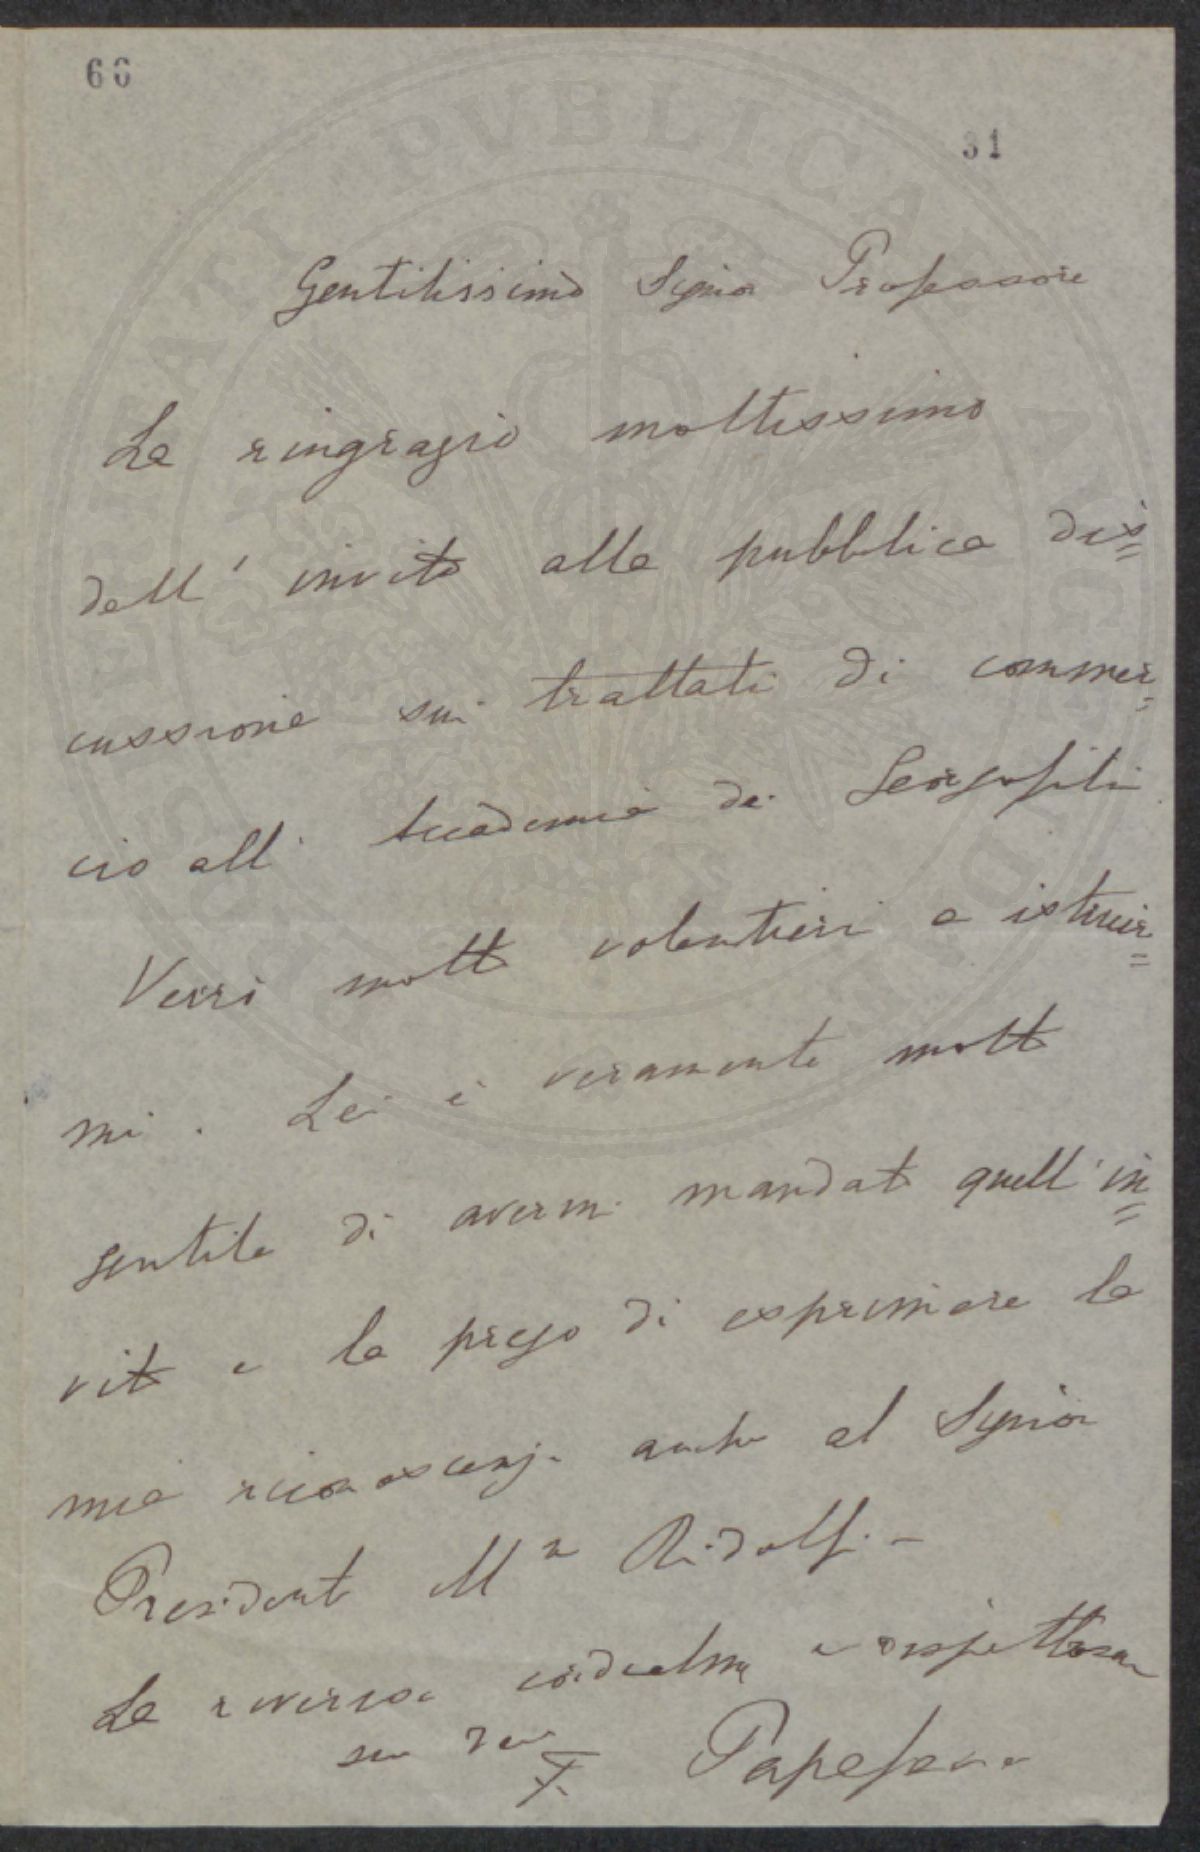 66
31
Gentilissimo Signor Professore
La ringrazio moltissimo
dell' invito alla pubblica dis=
cussione sui trattati di commer=
cio all' Accademia dei Georgofili
Verrò molto volentieri a istruir=
mi. Lei è veramente molto
gentile di avermi mandato quell' in=
vito e la prego di esprimere la
mia riconoscenza anche al Signor
Presidente Mse Ridolfi. -
La riverisco cordialme e rispettosam
suo dev
F. Papafava